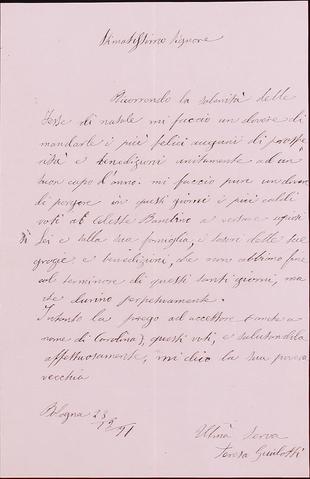 Stimatissimo Signore
Ricorrendo la solenità delle
feste di natale mi faccio un dovere di
mandarle i più felici auguri di prosspe
rità e benedizioni unitamente ad un
buon capo d'anno: mi faccio pure un dovere
di porgere in questi giorni i più caldi
voti al Celeste Bambino a versare sopra
di Lei e sulla sua famiglia, i tesori delle sue
grazie e benedizioni, che non abbiano fine
col terminare di questi santi giorni, ma
che durino perpetuamente.
Intanto la prego ad accettare (anche a
nome di Carolina), questi voti, e salutandola
affettuosamente, mi dico la sua povera
vecchia
Bologna 23/12 91
Ulma Serva
Teresa